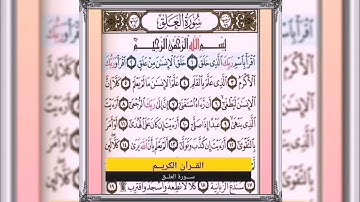 سُورَةُ الْعَلَقِ
بِسْمِ اللَّهِ الرَّحْمَٰنِ الرَّحِيمِ
اقْرَأْ بِاسْمِ رَبِّكَ الَّذِي خَلَقَ ١ خَلَقَ الْإِنسَانَ مِنْ عَلَقٍ ٢ اقْرَأْ وَرَبُّكَ
الْأَكْرَمُ ٣ الَّذِي عَلَّمَ بِالْقَلَمِ ٤ عَلَّمَ الْإِنسَانَ مَا لَمْ يَعْلَمْ ٥ كَلَّا إِنَّ
الْإِنسَانَ لَيَطْغَىٰ ٦ أَن رَّآهُ اسْتَغْنَىٰ ٧ إِنَّ إِلَىٰ رَبِّكَ الرُّجْعَىٰ ٨ أَرَأَيْتَ
الَّذِي يَنْهَىٰ ٩ عَبْدًا إِذَا صَلَّىٰ ١٠ أَرَأَيْتَ إِن كَانَ عَلَى الْهُدَىٰ ١١ أَوْ أَمَرَ
بِالتَّقْوَىٰ ١٢ أَرَأَيْتَ إِن كَذَّبَ وَتَوَلَّىٰ ١٣ أَلَمْ يَعْلَم بِأَنَّ اللَّهَ يَرَىٰ ١٤ كَلَّا
القرآن الكريم
سورة العلق
سَنَدْعُ الزَّبَانِيَةَ ١٨ كَلَّا لَا تُطِعْهُ وَاسْجُدْ وَاقْتَرِب ۩ ١٩